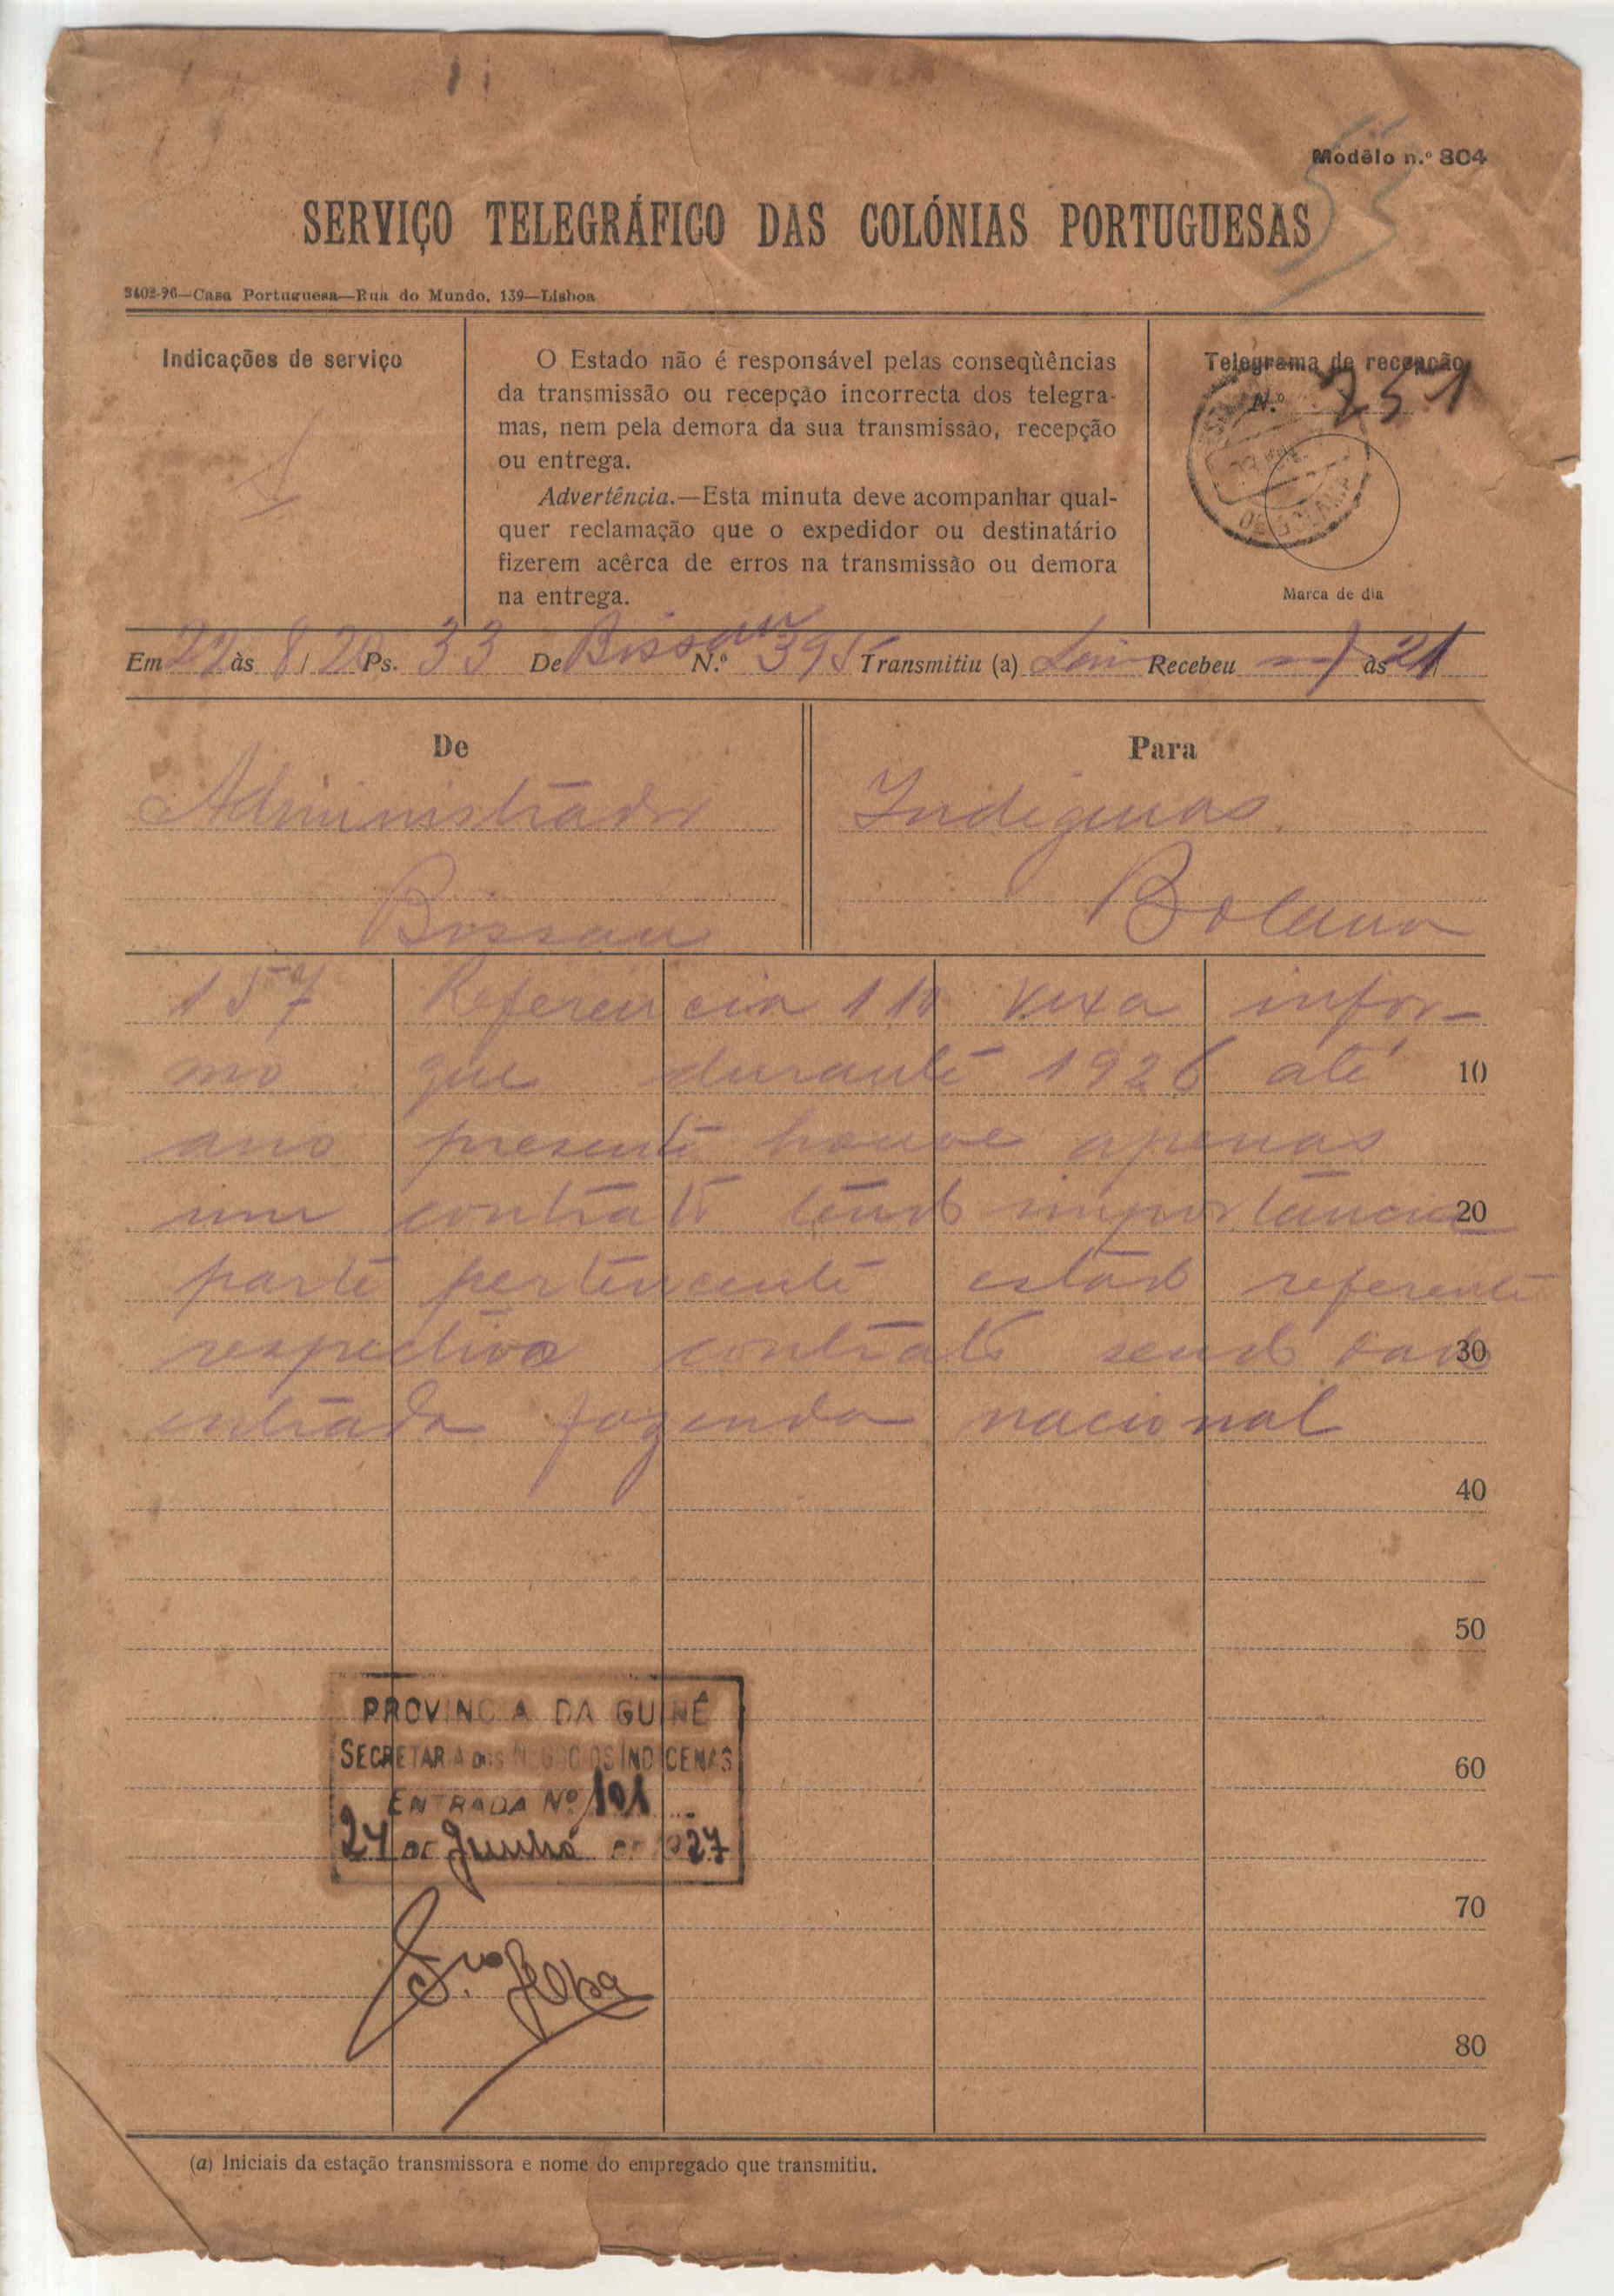 55
Modêlo n.º 304
SERVIÇO TELEGRÁFICO DAS COLÓNIAS PORTUGUESAS
3402-26—Casa Portuguesa—Rua do Mundo, 139—Lisboa
Indicações de serviço
O Estado não é responsável pelas conseqùências
da transmissão ou recepção incorrecta dos telegra-
mas, nem pela demora da sua transmissão, recepção
ou entrega.
Advertência.—Esta minuta deve acompanhar qual-
quer reclamação que o expedidor ou destinatário
fizerem acêrca de erros na transmissão ou demora
na entrega.
Telegrama de recepção
N.º 251
Marca de dia
Em 22 às 8/20 Ps. 33 De Bissau N.º 395 Transmitiu (a) Recebeu às 21
De
Administrador
Bissau
Para
Indigenas
Bolama
157 Referencia 110 vexa infor-
mo que durante 1926 até 10
ano presente houve apenas
um contrato tendo importancia 20
parte pertencente estado referente
respectivo contrato sendo dado 30
entrada fazenda nacional
40
50
PROVINCIA DA GUINÉ
SECRETARIA DOS NEGOCIOS INDIGENAS
ENTRADA Nº 101
60
24 DE Junho DE 1927
70
80
(a) Iniciais da estação transmissora e nome do empregado que transmitiu.